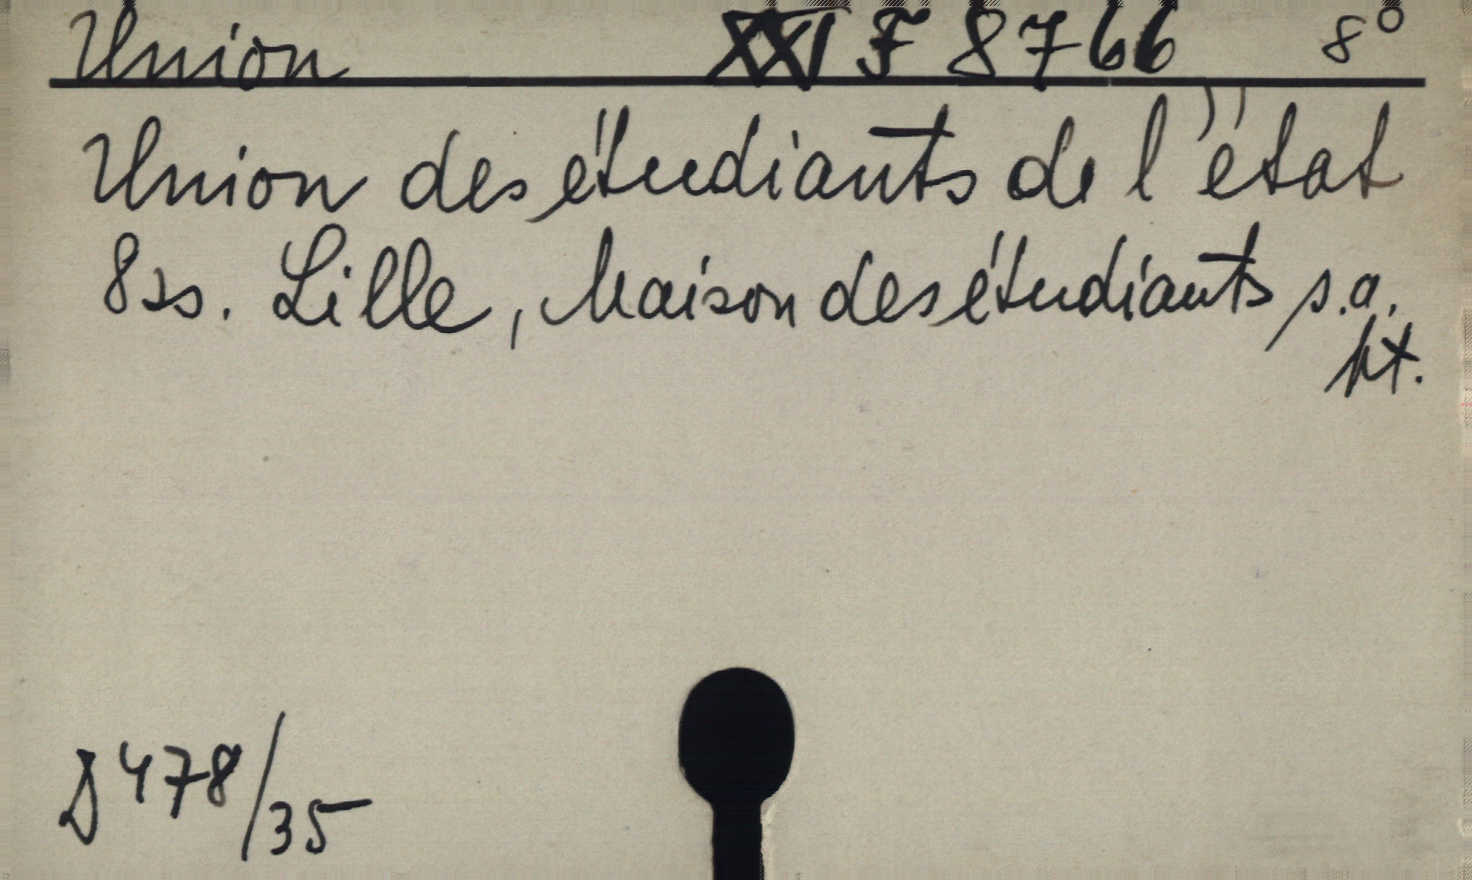 Union XXI F 8766 8°
Union des étudiants de l'état
8ss. Lille, Maison des étudiants s.a.
kt.
D 478/35